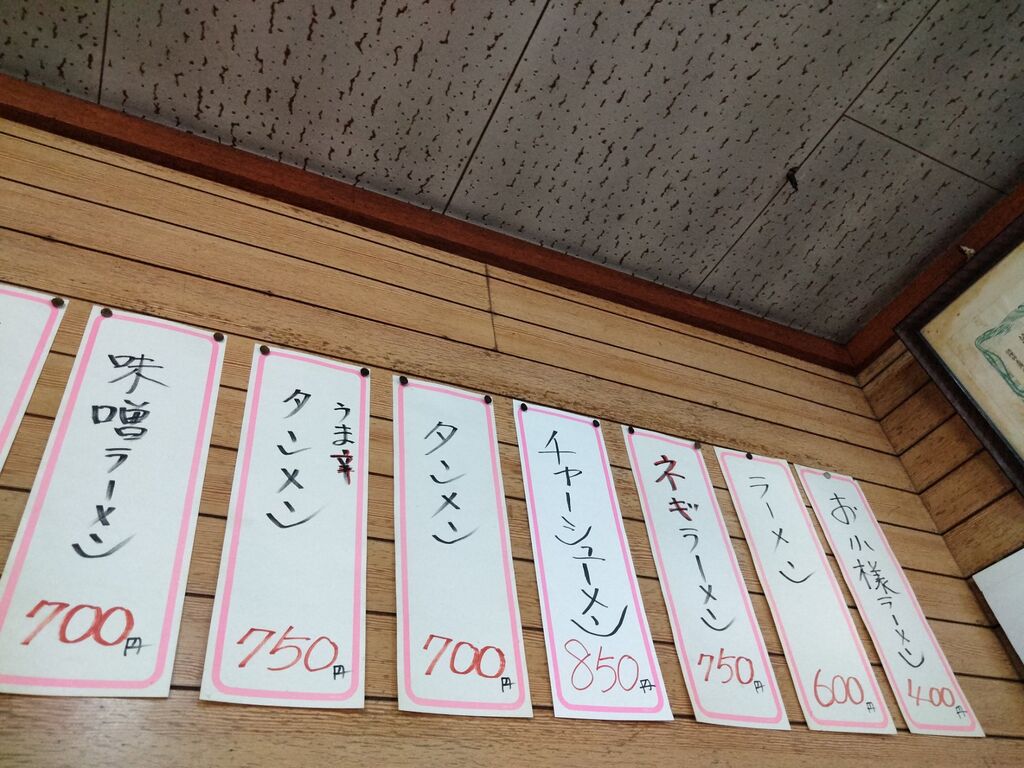 お小様ラーメン
400円
ラーメン
600円
ネギラーメン
750円
チャーシューメン
850円
タンメン
700円
うま辛
タンメン
750円
味噌ラーメン
700円